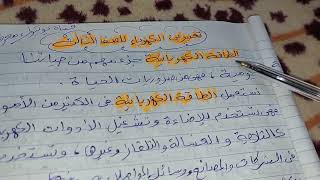 تعبير عن الكهرباء للصف الثالث
الطاقة الكهربائية جزء مهم من حياتنا
اليومية، فهي من ضروريات الحياة
تستعمل الطاقة الكهربائية في الكثير من الأمور
فهي تستخدم للإضاءة وتشغيل الأدوات الكهربائية
كالثلاجة والغسالة والتلفاز وغيرها، وتستخدم
في الشركات والمصانع ووسائل المواصلات